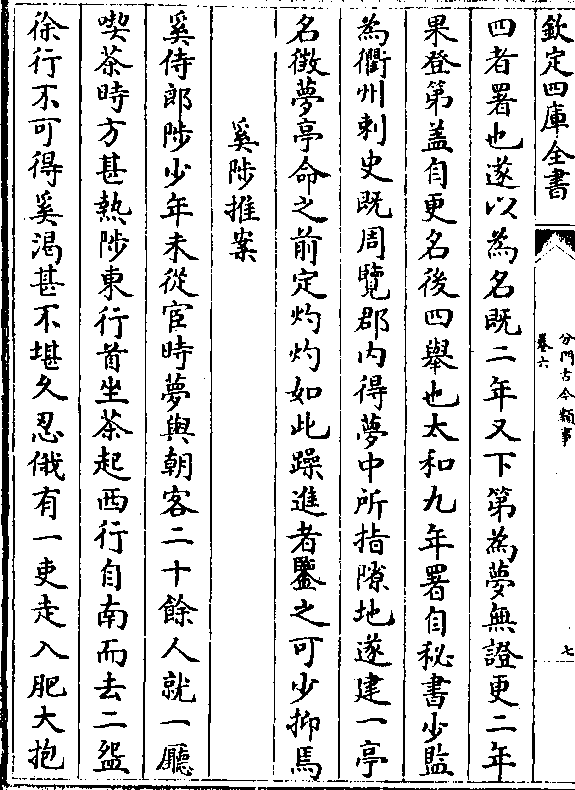 欽定四庫全書
分門古今類事
卷六
七
四者署也遂以為名既二年又下第為夢無證更二年
果登第盖自更名後四舉也太和九年署自秘書少監
為衢州刺史既周覽郡内得夢中所指隙地遂建一亭
名徴夢亭命之前定灼灼如此躁進者鑒之可少抑焉
奚陟推案
奚侍郎陟少年未從宦時夢與朝客二十餘人就一廳
喫茶時方甚熱陟東行首坐茶起西行自南而去二盌
徐行不可得奚渴甚不堪久忍俄有一吏走入肥大抱